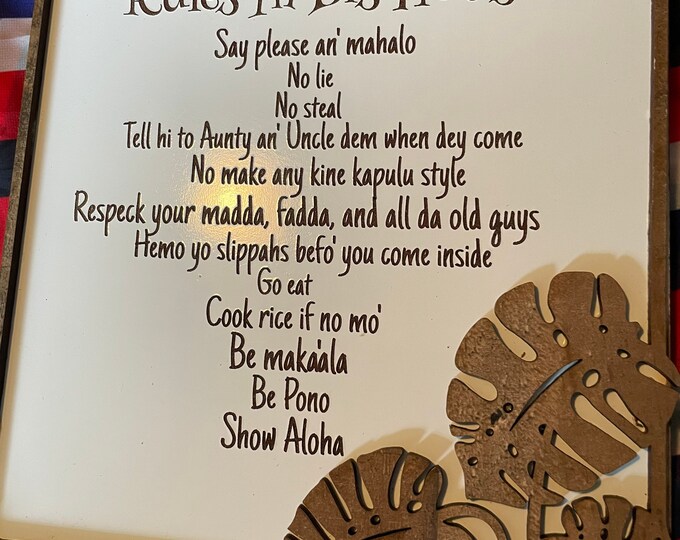 Rules In Dis House
Say please an' mahalo
No lie
No steal
Tell hi to Aunty an' Uncle dem when dey come
No make any kine kapulu style
Respeck your madda, fadda, and all da old guys
Hemo yo slippahs befo' you come inside
Go eat
Cook rice if no mo'
Be maka'ala
Be Pono
Show Aloha